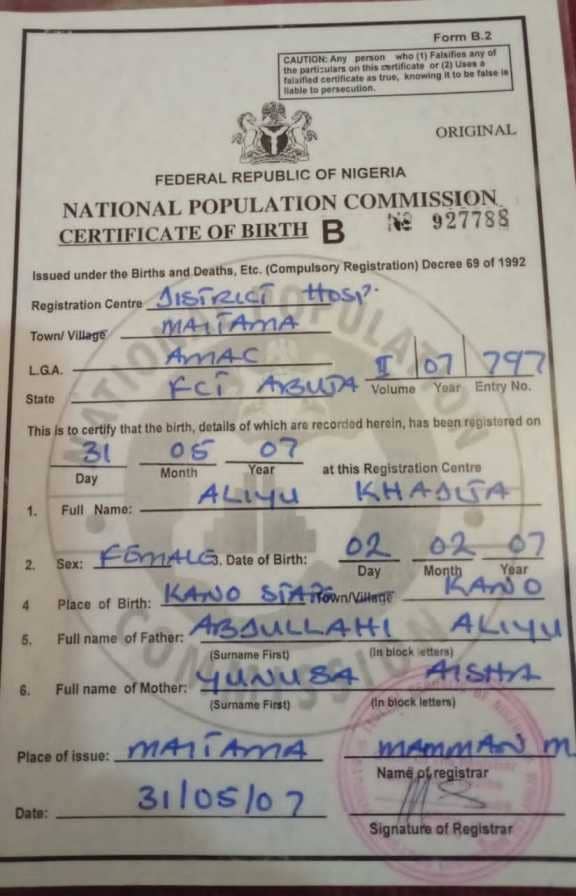 Form B.2
CAUTION: Any person who (1) Falsifies any of
the particulars on this certificate or (2) Uses a
falsified certificate as true, knowing it to be false is
liable to persecution.
ORIGINAL
FEDERAL REPUBLIC OF NIGERIA
NATIONAL POPULATION COMMISSION
CERTIFICATE OF BIRTH B No 927788
Issued under the Births and Deaths, Etc. (Compulsory Registration) Decree 69 of 1992
Registration Centre DISTRICT HOSP.
Town/ Village MAITAMA
L.G.A. AMAC
State FCT ABUJA
II 07 797
Volume Year Entry No.
This is to certify that the birth, details of which are recorded herein, has been registered on
31 05 07 at this Registration Centre
Day Month Year
1. Full Name: ALIYU KHADIJA
2. Sex: FEMALE 3. Date of Birth: 02 02 07
Day Month Year
4 Place of Birth: KANO STATE Town/Village KANO
5. Full name of Father: ABDULLAHI ALIYU
(Surname First) (In block letters)
6. Full name of Mother: YUNUSA AISHA
(Surname First) (In block letters)
Place of issue: MAITAMA MAMMAN M
Name of registrar
Date: 31/05/07
Signature of Registrar
NATIONAL POPULATION COMMISSION